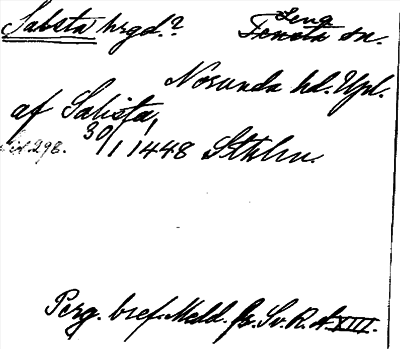 Sabsta hrgd.? Lena
Tensta sn.
Norunda hd. Upl.
af Salista,
Sid. 298. 30/1 1448 Sthlm.
Perg. bref. Medd. fr. Sv. R. A. XIII.